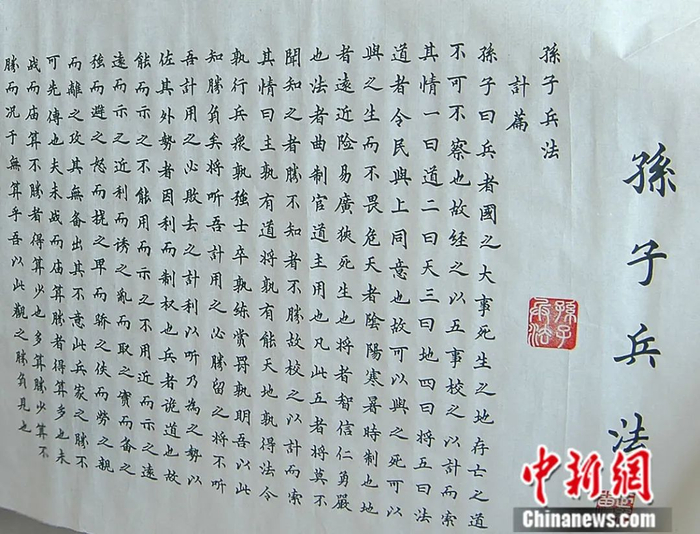 孫子兵法
孫子兵法
孫子兵法
計篇
孫子曰兵者國之大事死生之地存亡之道
不可不察也故经之以五事校之以計而索
其情一曰道二曰天三曰地四曰将五曰法
道者令民與上同意也故可以與之死可以
與之生而不畏危天者陰陽寒暑時制也地
者遠近险易廣狹死生也将者智信仁勇嚴
也法者曲制官道主用也凡此五者将莫不
聞知之者勝不知者不勝故校之以計而索
其情曰主孰有道将孰有能天地孰得法令
孰行兵衆孰強士卒孰练赏罚孰明吾以此
知勝負矣将听吾計用之必勝留之将不听
吾計用之必敗去之計利以听乃為之勢以
佐其外勢者因利而制权也兵者诡道也故
能而示之不能用而示之不用近而示之遠
遠而示之近利而诱之亂而取之實而备之
強而避之怒而挠之卑而骄之佚而劳之親
而離之攻其無备出其不意此兵家之勝不
可先傳也夫未战而庙算勝者得算多也未
战而庙算不勝者得算少也多算勝少算不
勝而况于無算乎吾以此觀之勝負見也
中新网
Chinanews.com